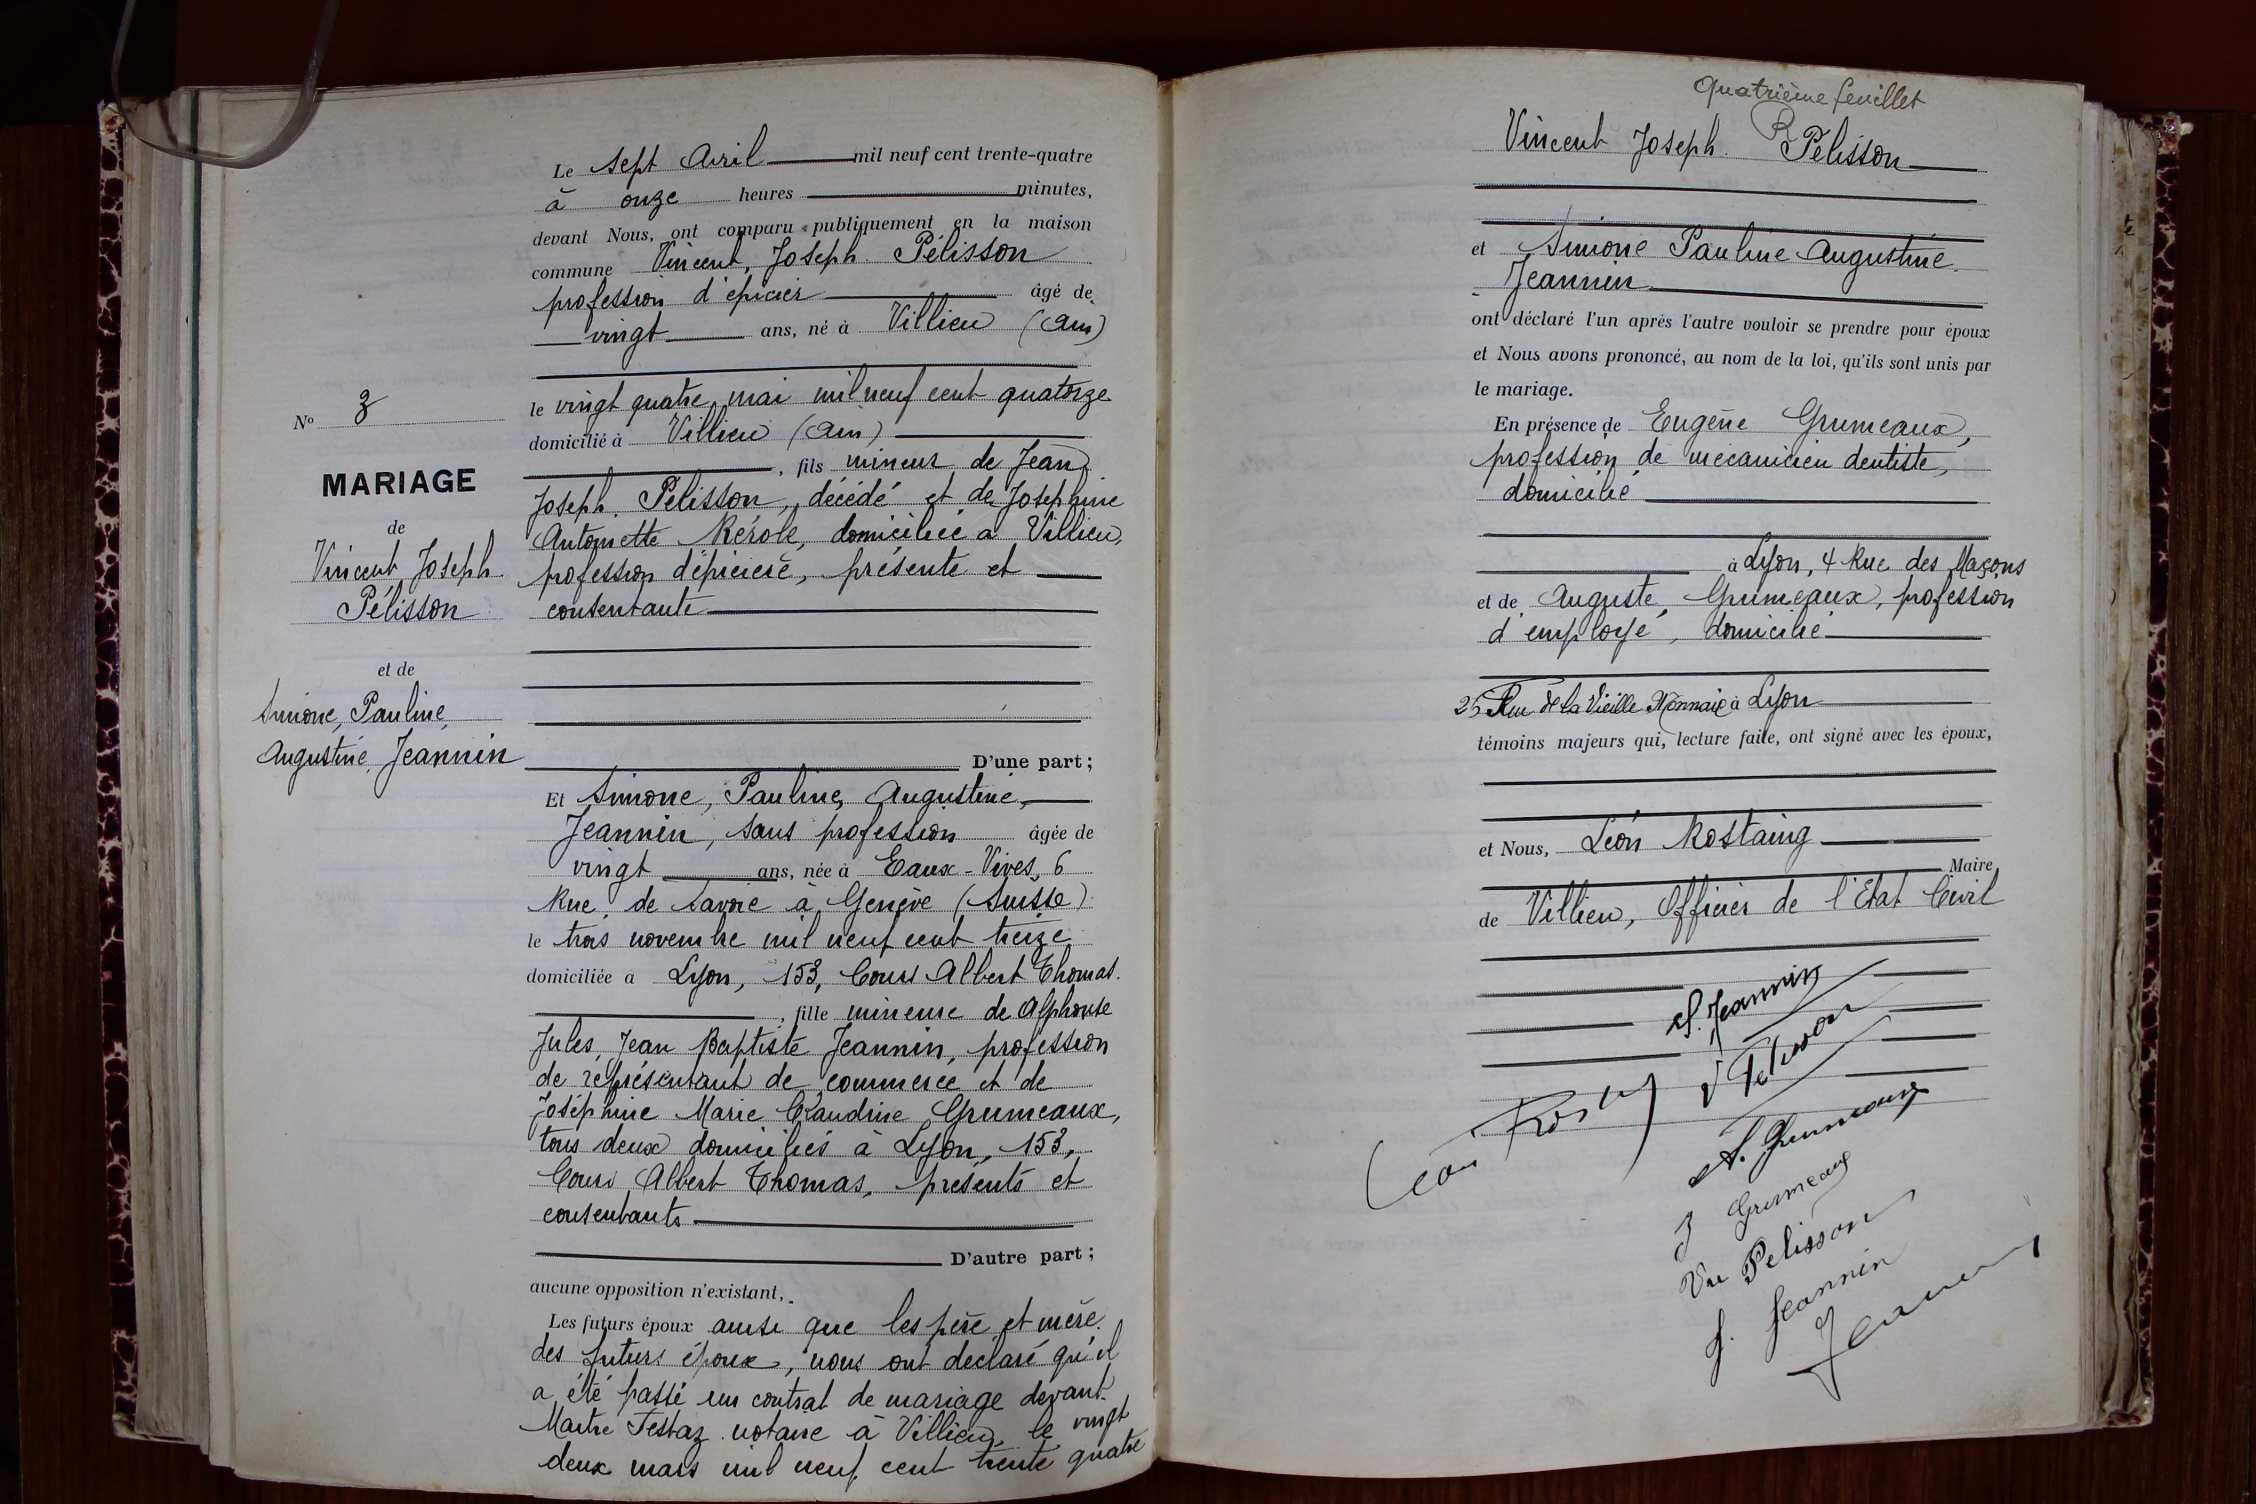 N° 3
MARIAGE
de
Vincent Joseph
Pélisson
et de
Simone, Pauline,
Augustine, Jeannin
Le sept Avril mil neuf cent trente-quatre
à onze heures minutes,
devant Nous, ont comparu publiquement en la maison
commune Vincent, Joseph Pélisson
profession d'épicier âgé de
vingt ans, né à Villieu (Ain)
le vingt quatre mai mil neuf cent quatorze
domicilié à Villieu (Ain)
, fils mineur de Jean
Joseph Pélisson, décédé et de Joséphine
Antoinette Rérole, domiciliée à Villieu,
profession d'épicière, présente et
consentante
D'une part;
Et Simone, Pauline, Augustine,
Jeannin, sans profession âgée de
vingt ans, née à Eaux-Vives, 6
Rue de Savoie à Genève (Suisse)
le trois novembre mil neuf cent treize
domiciliée à Lyon, 153, Cours Albert Thomas.
, fille mineure de Alphonse
Jules, Jean Baptiste Jeannin, profession
de représentant de commerce et de
Joséphine Marie Claudine Grumeaux,
tous deux domiciliés à Lyon, 153,
Cours Albert Thomas, présents et
consentants
D'autre part;
aucune opposition n'existant,
Les futurs époux ainsi que les père et mère
des futurs époux, nous ont déclaré qu'il
a été passé un contrat de mariage devant
Maitre Testaz notaire à Villieu, le vingt
deux mars mil neuf cent trente quatre
Quatrième feuillet
R
Vincent Joseph Pélisson
et Simone Pauline Augustine
Jeannin
ont déclaré l'un après l'autre vouloir se prendre pour époux
et Nous avons prononcé, au nom de la loi, qu'ils sont unis par
le mariage.
En présence de Eugène Grumeaux,
profession de mecanicien dentiste,
domicilié
à Lyon, 4 Rue des Maçons
et de Auguste, Grumeaux, profession
d'employé, domicilié
25 Rue de la Vieille Monnaie à Lyon
témoins majeurs qui, lecture faite, ont signé avec les époux,
et Nous, Léon Rostaing
Maire
de Villieu, Officier de l'Etat Civil
S. Jeannin
V Pelisson
Léon Rostaing
A. Grumeaux
J Grumeaux
Vve Pelisson
J. Jeannin
Jeannin